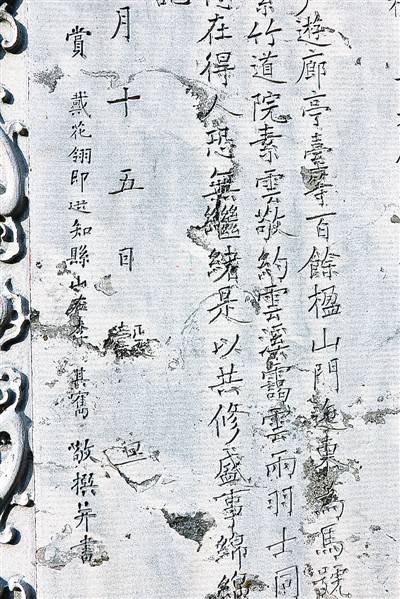 遊廊亭臺等百餘楹山門迤東為馬號
竹道院素雲敬約雲溪靄雲兩羽士同
在得人恐無繼緒是以共修盛事綿綿
月十五日
賞戴花翎即選知縣山李其寯敬撰并書